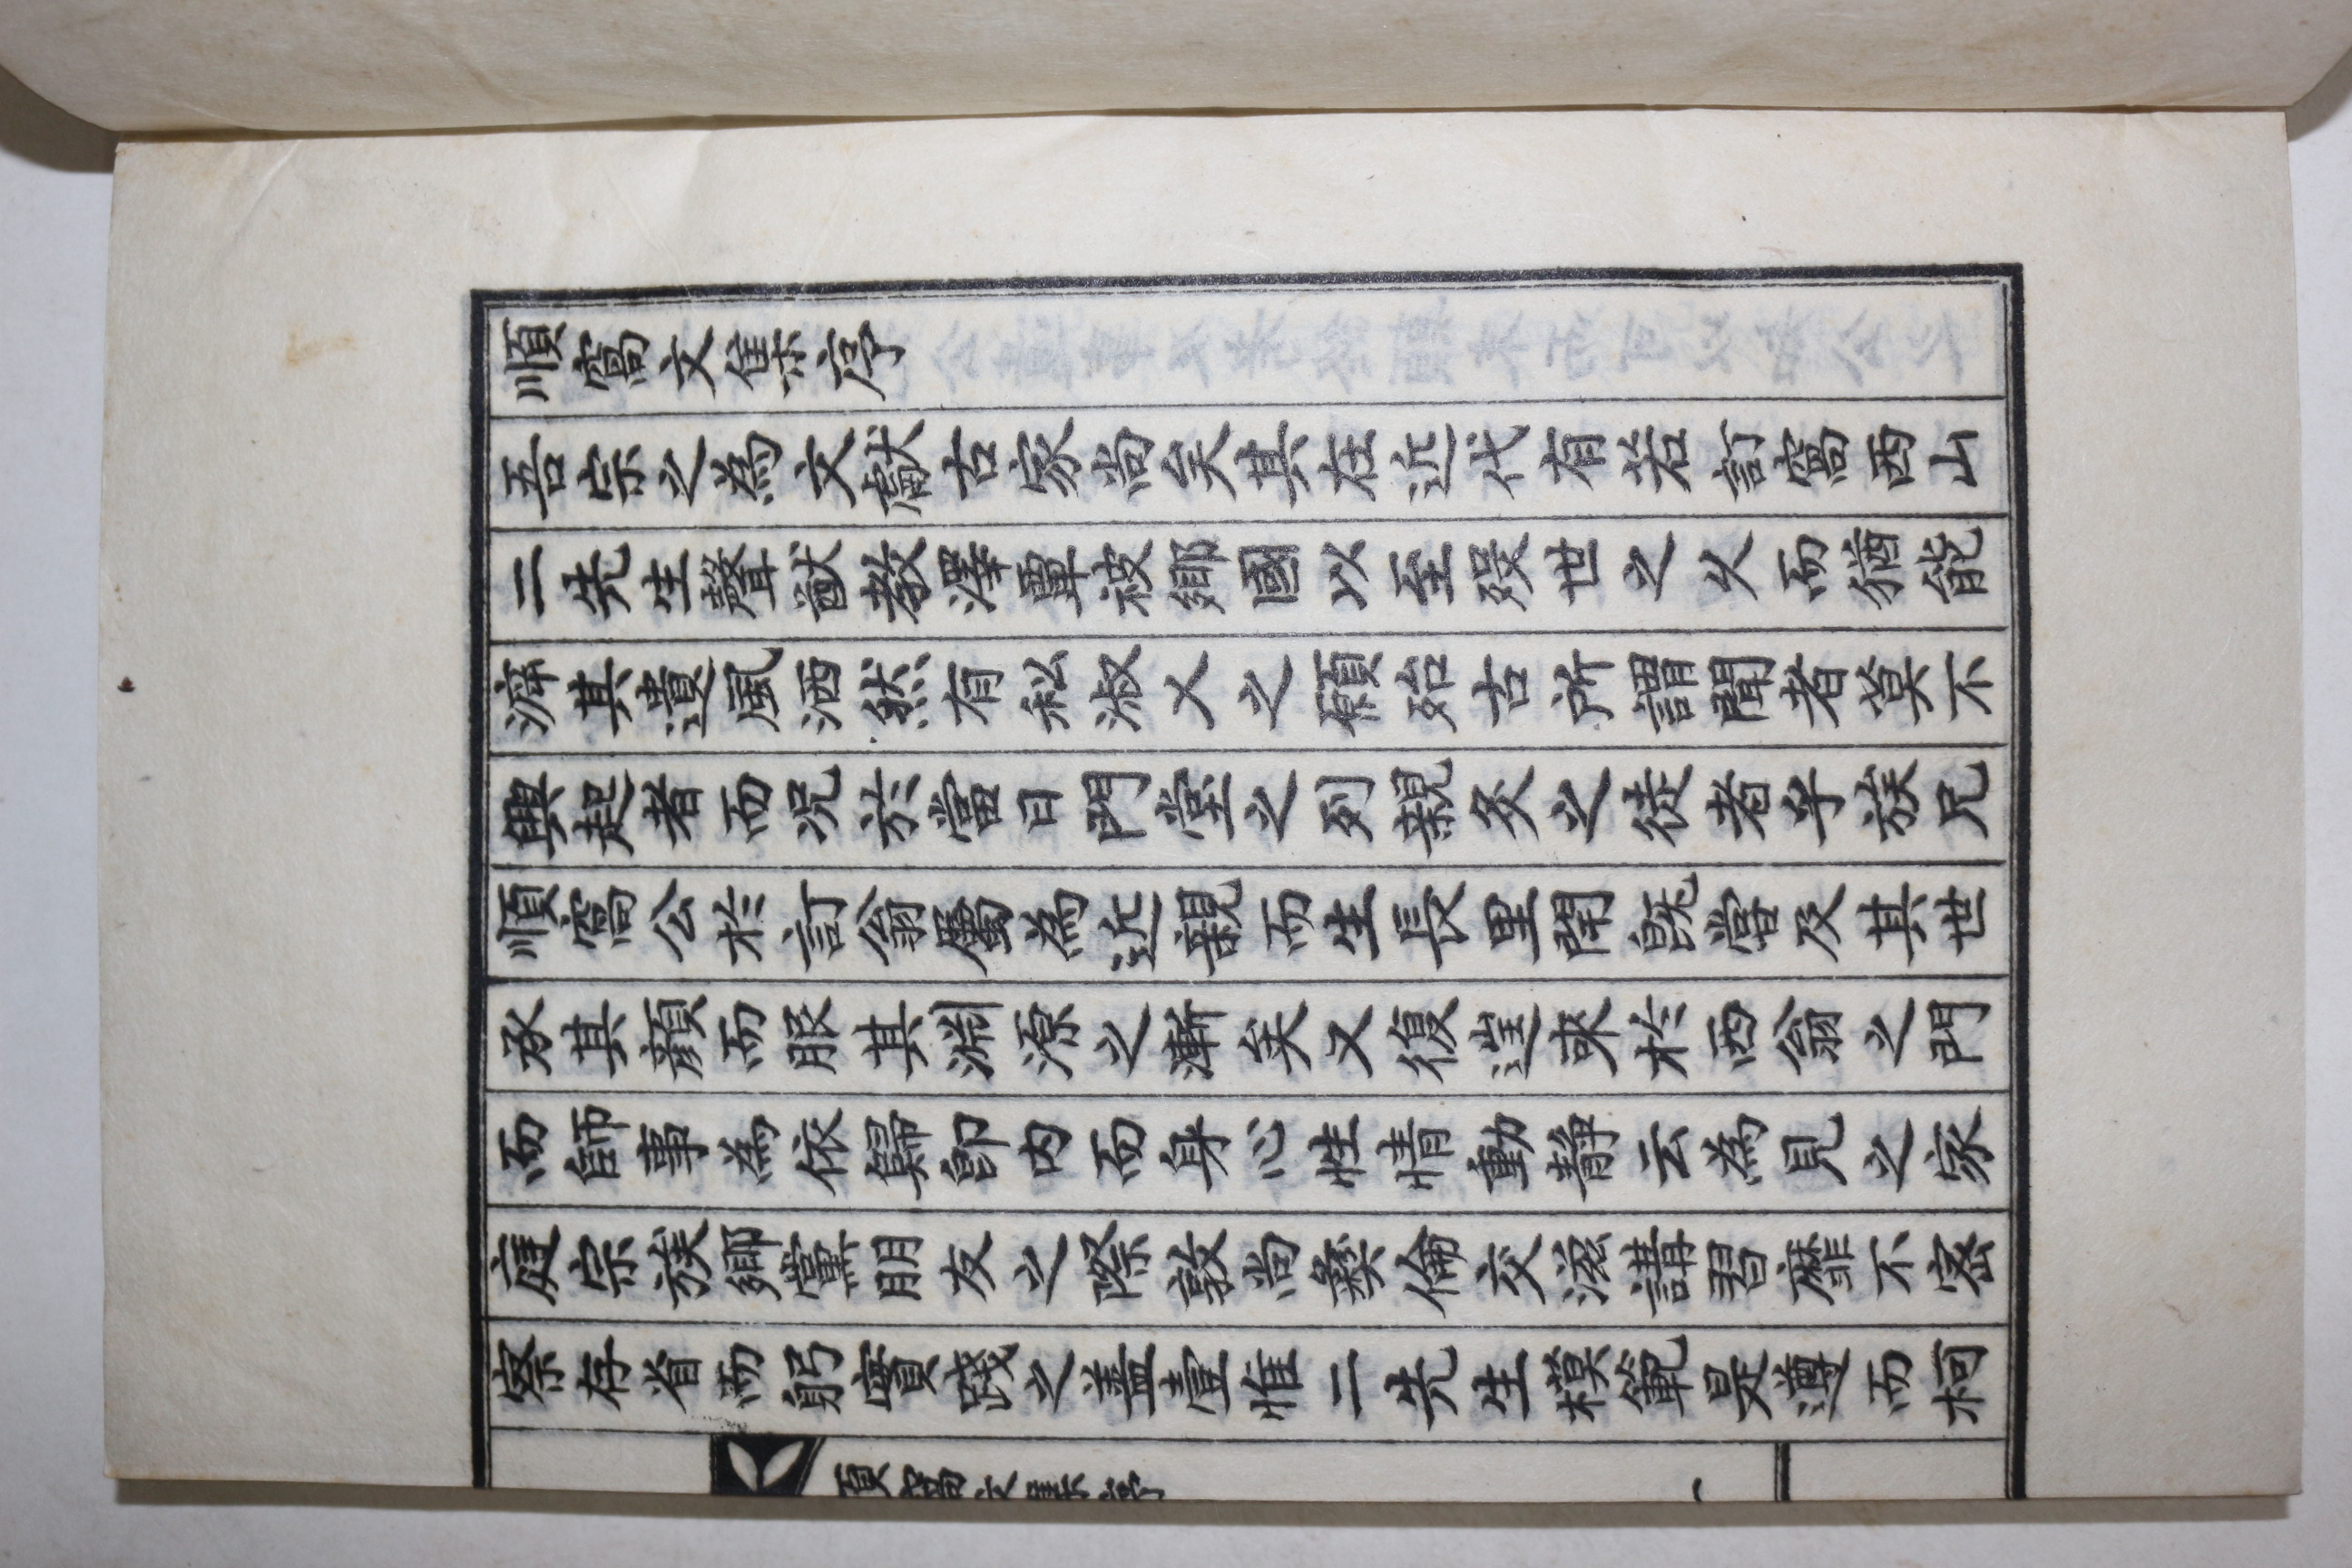 順窩文集序
吾宗之爲文獻古家尚矣其在近代有若訂窩西山
二先生聲猷敎澤覃被鄕國以至歿世之久而猶能
其遺風洒然有私淑乂之願殆古所謂聞者莫不
興起者而況於當日門堂之列親炙之徒者乎族兄
順窩公於訂翁屬爲近親而生長里閈旣嘗及其世
承其顔而服其淵源之漸矣又復來於西翁之門
而師事爲依歸卽内而身心性情動靜云爲見之家
庭宗族鄕黨朋友之際敦尚彜倫交滋講習靡不密
察存省而躬實踐之盖亶惟二先生模範是遵而柯
順窩文集序